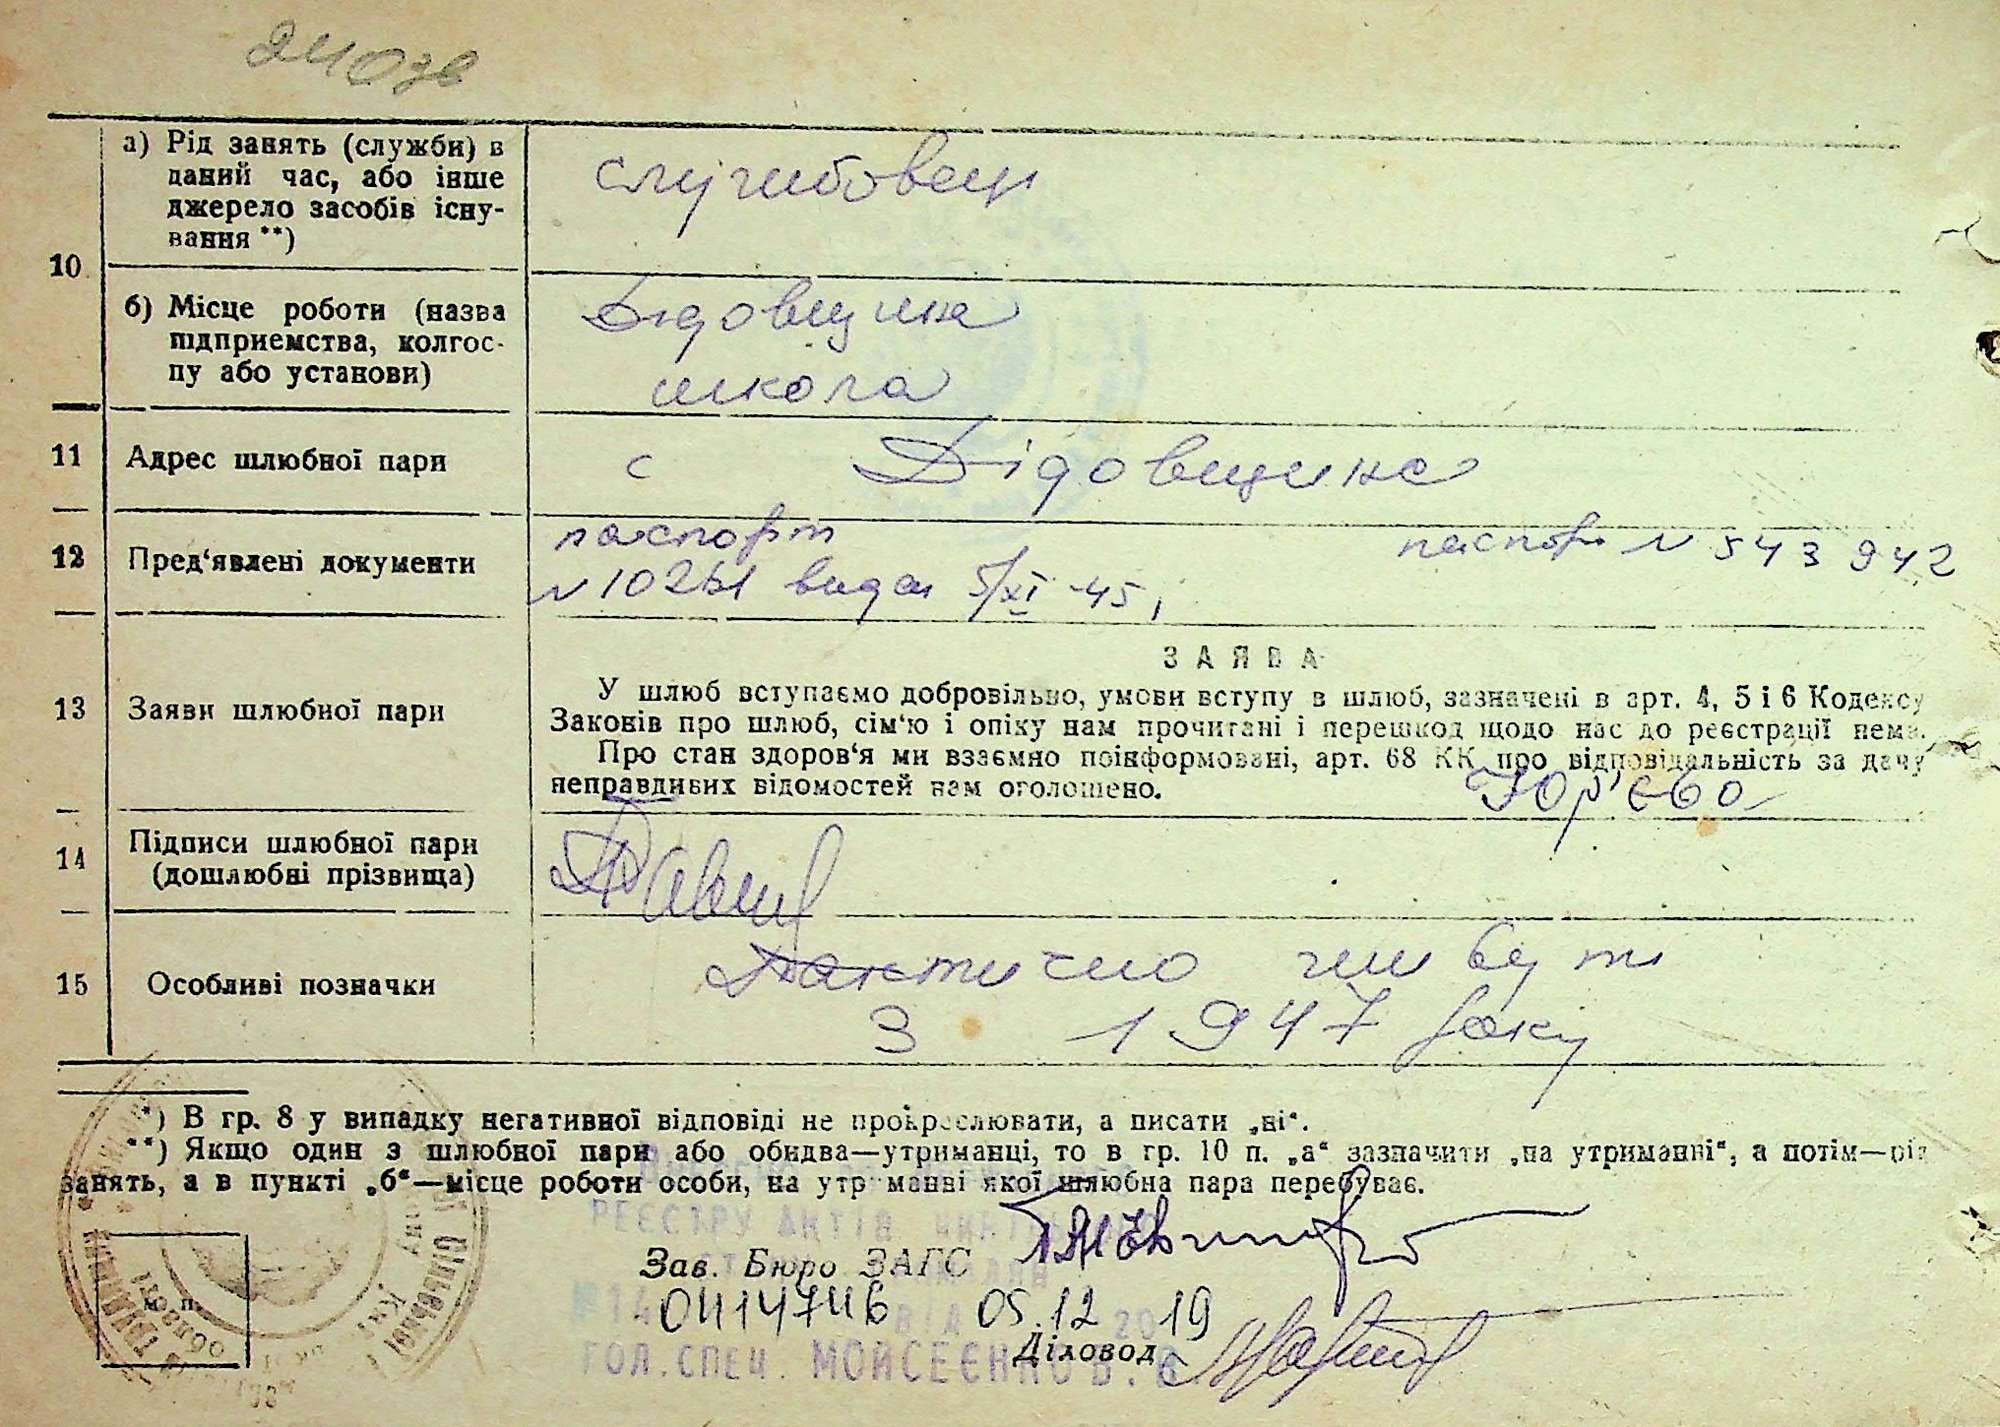 а) Рід занять (службы) в
даний час, або інше
джерело засобів існу-
вання **)
службовец
10
б) Місце роботи (назва
підприемства, колгос-
пу або установи)
Дідовщина
школа
11 Адрес шлюбної пари с Дідовщина
12 Пред‘явлені документи
паспорт паспорт N 543942
видан 5/XI-45,
ЗАЯВА
13 Заяви шлюбної пари
У шлюб вступаємо добровільно, умови вступу в шлюб, зазначені в арт. 4, 5 і 6 Кодексу
Законів про шлюб, сім‘ю і опіку нам прочитані і перешкод щодо нас до реєстрації нема.
Про стан здоров‘я ми взаємно поінформовані, арт. 68 КК про відповідальність за дачу
неправдивих відомостей нам оголошено.
Юр'єва
14 Підписи шлюбної пари
(дошлюбні прізвища)
15 Особливі позначки
Фактично шлюбути
з 1947 року
*) В гр. 8 у випадку негативної відповіді не прокреслювати, а писати „ні“.
**) Якщо один з шлюбної пари або обидва—утриманці, то в гр. 10 п. „а“ зазначити „на утриманні“, а потім—рід
занять, а в пункті „б“—місце роботи особи, на утриманні якої шлюбна пара перебуває.
РЕЄСТРУ АКТІВ
Зав. Бюро ЗАГС
м. п.
05.12 2019
Діловод
ГОЛ.СПЕЦ. МОЙСЕЄНКО В.В.